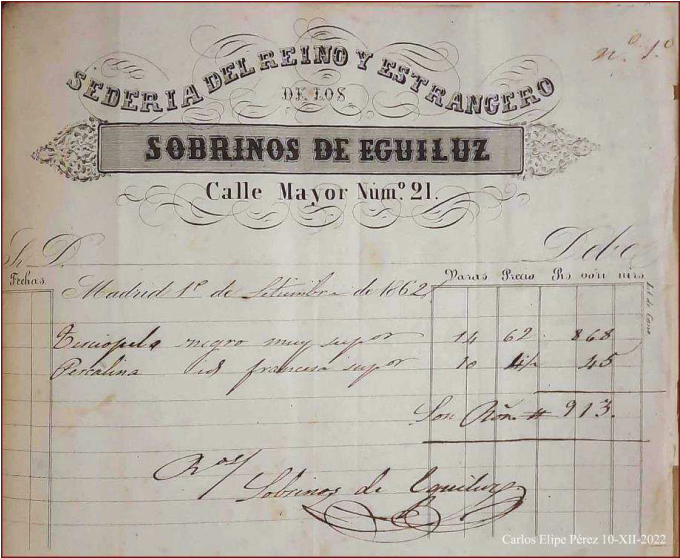 nº 1º
SEDERIA DEL REINO Y ESTRANGERO
DE LOS
SOBRINOS DE EGUILUZ
Calle Mayor Númº 21.
Sr. D. Debe
Fechas. Varas Precio Rs von mrs
Madrid 1º de Setiembre de 1862
Terciopelo negro muy supor 14 62 868
Percalina id francesa supor 10 4½ 45
Son Rón # 913.
Sobrinos de Eguiluz
Carlos Elipe Pérez 10-XII-2022